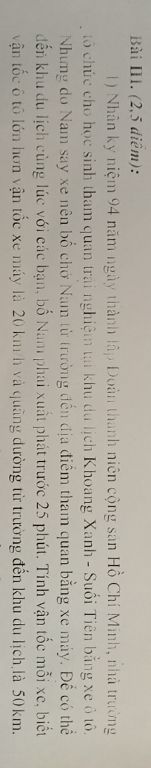 Bài III. (2,5 điểm):
1) Nhân kỷ niệm 94 năm ngày thành lập Đoàn thanh niên cộng sản Hồ Chí Minh, nhà trường
tổ chức cho học sinh tham quan trải nghiệm tại khu du lịch Khoang Xanh - Suối Tiên bằng xe ô tô.
Nhưng do Nam say xe nên bố chở Nam từ trường đến địa điểm tham quan bằng xe máy. Để có thể
đến khu du lịch cùng lúc với các bạn, bố Nam phải xuất phát trước 25 phút. Tính vận tốc mỗi xe, biết
vận tốc ô tô lớn hơn vận tốc xe máy là 20 km/h và quãng đường từ trường đến khu du lịch là 50km.